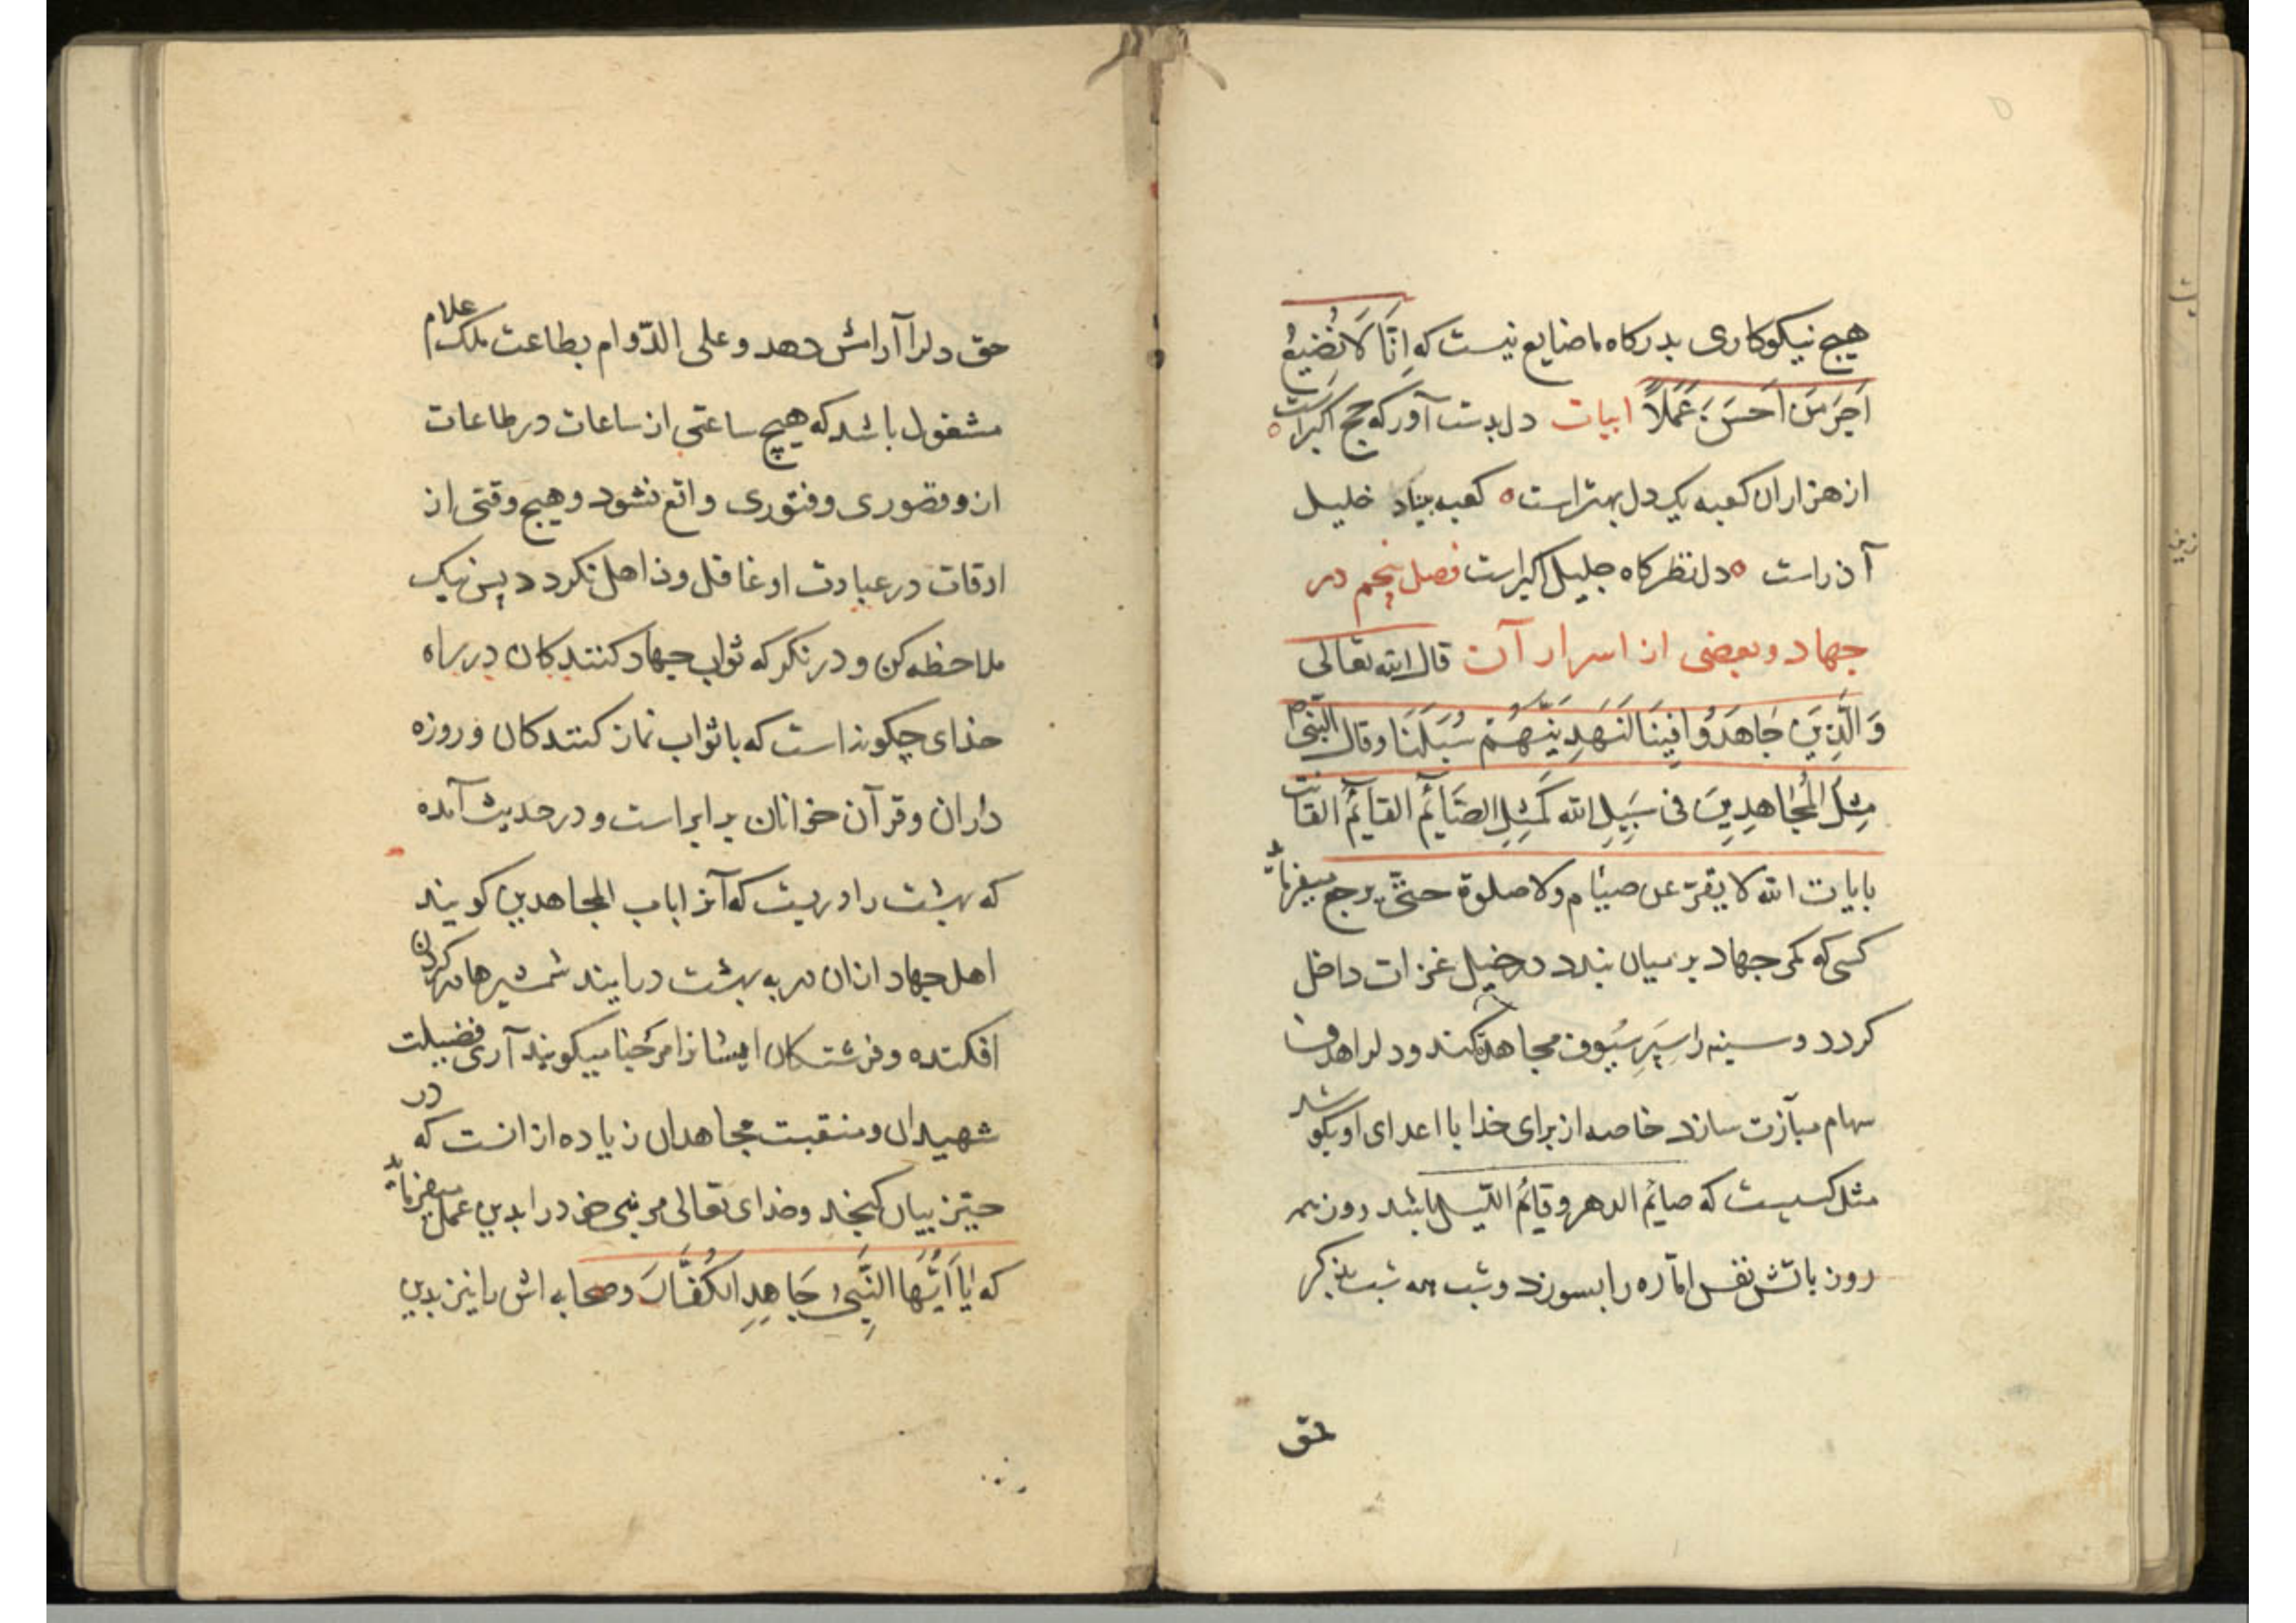 هیچ نیکوکاری بدرکاه ما ضایع نیست که اِنَّا لَا نُضِیعُ
اَجرَ مَن اَحسَنَ عَمَلاً ابیات دل بدست آور که حج اکبر است
از هزاران کعبه یک دل بهتر است کعبه بنیاد خلیل
آذر است دل نظرکاه جلیل اکبر است فصل پنجم در
جهاد و بعضی از اسرار آن قال الله تعالی
وَالَّذِینَ جَاهَدُوا فِینَا لَنَهدِیَنَّهُم سُبُلَنَا وقال النبی ص
مِثلُ المُجَاهِدِینَ فی سَبِیلِ الله کَمَثِلِ الصَّایِٔمِ القایِٔمِ القانت
بایات الله لا یفتر عن صیام ولا صلوة حتّی یرجع میفرماید
کسی که کمر جهاد بر میان بندد در خیل غزات داخل
کردد و سینه را سِپَرِ سُیُوف مجاهده کند و دلرا هدف
سهام مبارزت سازد خاصه از برای خدا با اعدای او بکوشد
مثل کسیست که صایٔم الدهر و قایٔم اللّیل باشد روز همه
روز باتش نفس امّاره را بسوزد و شب همه شب بذکر
حق
حق دلرا آرایش دهد و علی الدّوام بطاعت ملک علام
مشغول باشد که هیچ ساعتی از ساعات در طاعات
ازو قصوری و فتوری واقع نشود و هیچ وقتی از
اوقات در عبادت او غافل و ذاهل نکردد پس نیک
ملاحظه کن و در نکر که ثواب جهاد کنندکان در راه
خدای چکونه است که با ثواب نماز کنندکان و روزه
داران و قرآن خوانان برابر است و در حدیث آمده
که بهشت را دریست که آنرا باب المجاهدین کویند
اهل جهاد ازان در به بهشت درایند شمشیرها در کردن
افکنده و فرشتکان ایشانرا مرحبا میکویند آری فضیلت
شهیدان و منقبت مجاهدان زیاده ازانست که در
حیّز بیان کنجد و خدای تعالی مر نبی خود را بدین عمل میفرماید
که یَا اَیُّهَا النَّبِیُّ جَاهِدِ الکُفَّارَ و صحابه اش را نیز بدین